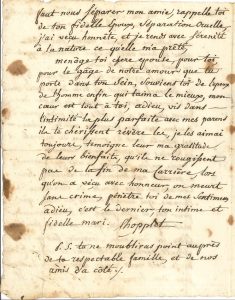 faut nous séparer mon amie, rappelle toi
de ton fidelle Epoux, Séparation Cruelle
j'ai vécu honnête, et je rends avec Sérénité
à la nature ce qu'elle m'a prêté,
ménage toi chere epouse, pour toi
pour le gage de notre amour que tu
porte dans ton Sein, Souviens toi de l'epoux
de l'homme enfin qui t'aima le mieux, mon
cœur est tout à toi, adieu, vis dans
l'intimité la plus parfaite avec mes parens
ils te chérissent révère les, je les aimai
toujours, temoigne leur ma gratitude
de leurs bienfaits, qu'ils ne rougissent
pas de la fin de ma Carrière, lors
qu'on a vécu avec honneur, on meurt
Sans crime, pénètre toi de mes Sentimens
adieu, c'est le dernier ton intime et
fidelle mari.
P.S. tu ne m'oublieras point auprès
de ta respectable famille, et de nos
amis d'à côté